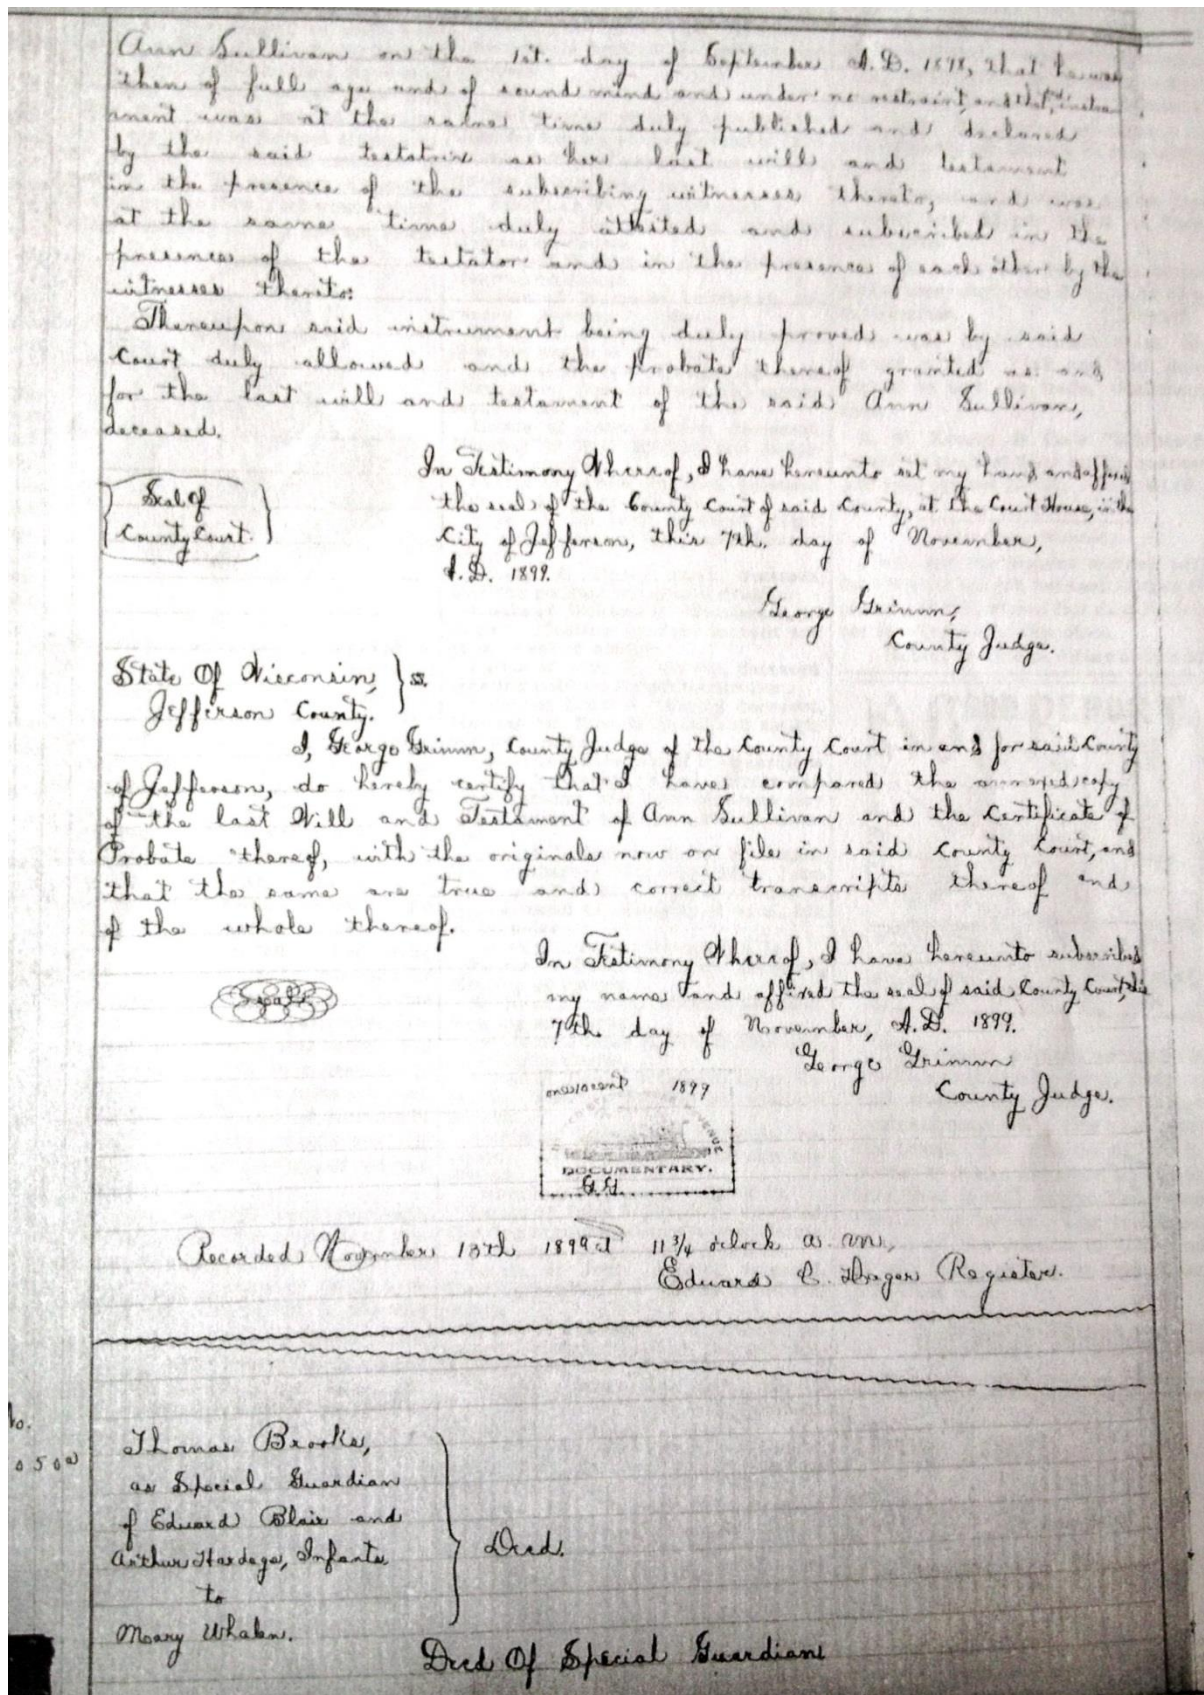 Ann Sullivan on the 1st. day of September A.D. 1898, that he was
then of full age and of sound mind and under no restraint, and that, instru
ment was at the same time duly published and declared
by the said testatrix as her last will and testament
in the presence of the subscribing witnesses thereto, and was
at the same time duly attested and subscribed in the
presence of the testator and in the presence of each other by the
witnesses thereto:
Thereupon said instrument being duly proved was by said
Court duly allowed and the probate thereof granted as and
for the last will and testament of the said Ann Sullivan,
deceased.
In Testimony Whereof, I have hereunto set my hand and affixed
the seal of the County Court of said County, at the Court House, in the
City of Jefferson, this 7th. day of November,
A.D. 1899.
Seal Of
County Court.
George Grimm,
County Judge.
State Of Wisconsin, } ss.
Jefferson County.
I, George Grimm, County Judge of the County Court in and for said County
of Jefferson, do hereby certify that I have compared the annexed copy
of the last Will and Testament of Ann Sullivan and the Certificate of
Probate thereof, with the originals now on file in said County Court, and
that the same are true and correct transcripts thereof and
of the whole thereof.
In Testimony Whereof, I have hereunto subscribed
my name and affixed the seal of said County Court, this
7th. day of November, A.D. 1899.
Seal
George Grimm
County Judge.
one 10 cent 1899
DOCUMENTARY.
G.G.
Recorded November 13th 1899 at 11 3/4 oclock a. m.,
Edward C. Register.
No.
Thomas Brooks,
as Special Guardian
of Edward Blair and
Arthur Hardege, Infants
to
Mary Whalen.
Deed.
Deed Of Special Guardian